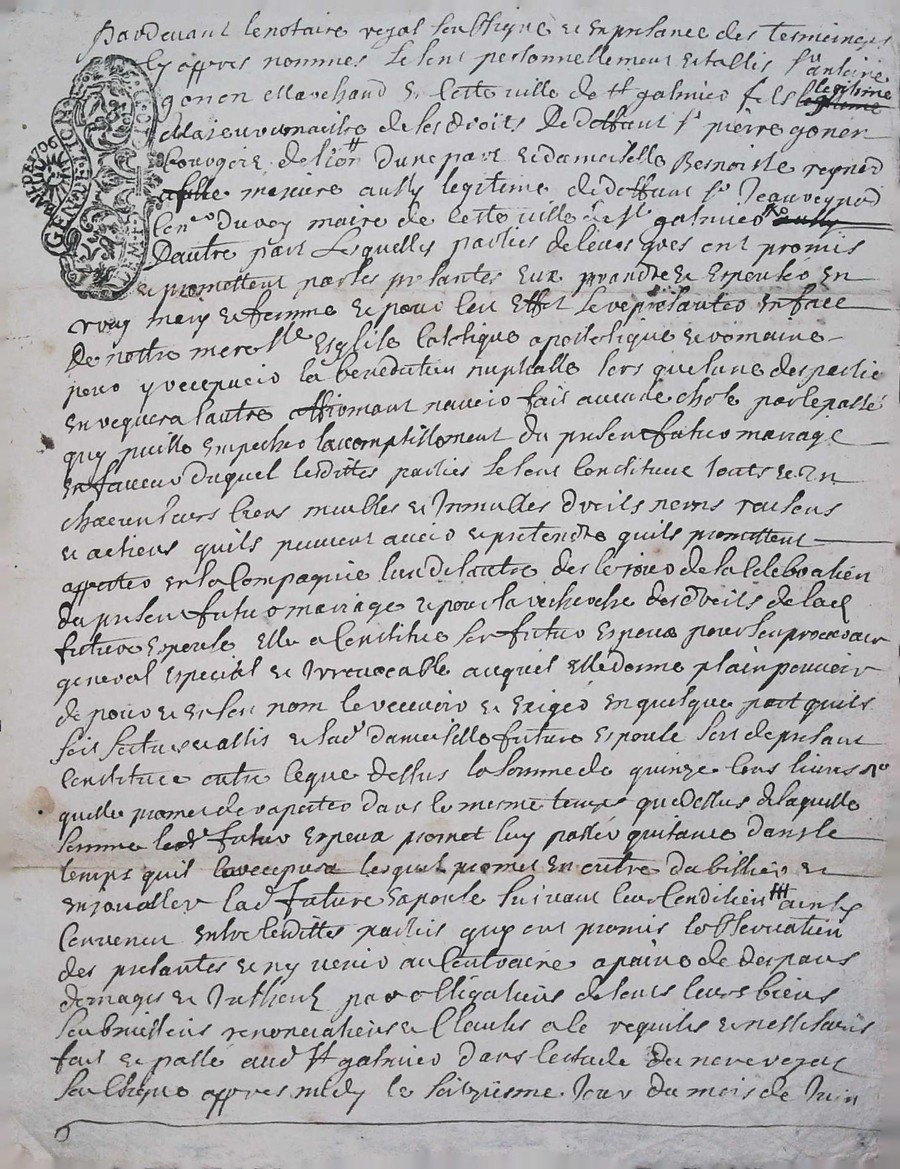 Pardevant le notaire royal soubsigne et en presance des tesmoings
cy appres nommes se sont personnellement establis sr antoine
gonon marchand de cette ville de st galmier fils legitime
et maieur maitre de ses droits de deffunt sr pierre gonon
bourgois de lion dune part et damoiselle Benoiste reynod
fille mineure aussy legitime de deffunt sr Jean reynod
du roy maire de cette ville de st galmier
Dautre part lesquelles parties de leurs gres ont promis
et promettent par les presantes eux prandre et Espouser en
vray mary et femme et pour leu Effet se representer en face
De nostre mere ste Esglise Catolique apostolique et romaine
pour y recepvoir la benediction nuptialle lors que lune des partie
en requera lautre affirmant navoir fait aucune chose par le passé
quy puisse empecher lacomplissement du presen futur mariage
En faveur duquel lesdittes parties se sont Constitues touts et Un
chacun leurs biens meubles et Inmubles droits noms raisons
et actions quils peuvent avoir et pretendre quils promettent
apporter en la Compagnie lun de lautre des le jour de la Celebration
du presen futur mariage et pour la recherche des droits de lad
future Espouse Elle a Constitue son futur Espoux pour son procureur
general Especial et Irrevocable auquel elle donne plain pouvoir
de pour et en son nom le recevoir et Exiger en quelque part quils
soit scitues et assis et lad damoiselle future Espouse sest de presant
Constituee outre ce que dessus la somme de quinze Cens livres
quelle promet de rapporter dans le mesme temps que dessus de laquelle
somme led futur Espoux promet luy passer quitance dans le
temps quil la recepvra lequel promet En outre dabillier et
enjoualler lad future Espouse suivant leur Condition ainsy
Convenu Entre lesdittes parties quy ont promis lobservation
des presantes et ny venir au Contraire a paine de despans
domages et Inthetz par obligations de touts leurs biens
soubmissions renonciations et Clauses a ce requises et nessesaires
fait et passé aud st galmier dans lestude du nore royal
soubsigne appres midy le saiziesme Jour du mois de Juin